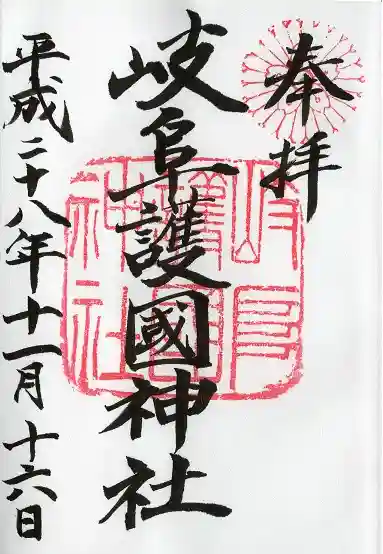 奉拝
岐阜護國神社
平成二十八年十一月十六日
岐阜護國神社